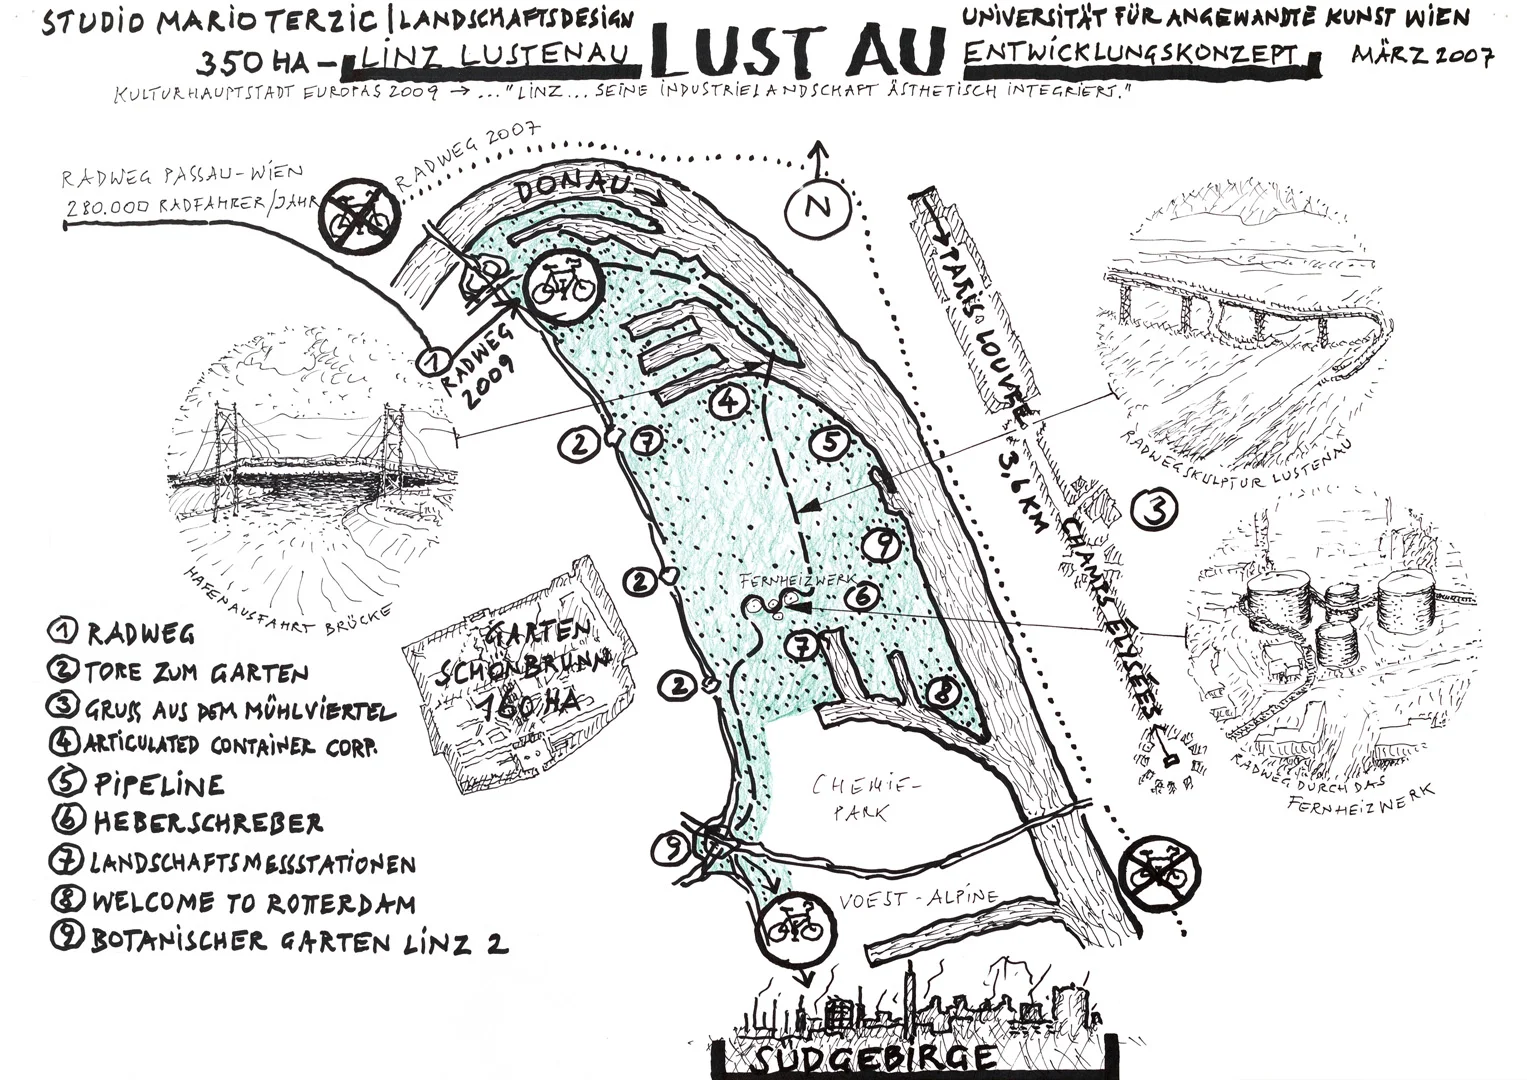 STUDIO MARIO TERZIC | LANDSCHAFTSDESIGN
350 HA – LINZ LUSTENAU
LUST AU
UNIVERSITÄT FÜR ANGEWANDTE KUNST WIEN
ENTWICKLUNGSKONZEPT MÄRZ 2007
KULTURHAUPTSTADT EUROPAS 2009 → ... "LINZ ... SEINE INDUSTRIELANDSCHAFT ÄSTHETISCH INTEGRIERT."
RADWEG PASSAU-WIEN
280.000 RADFAHRER/JAHR
RADWEG 2007
DONAU
N
1
RADWEG
2009
PARIS LOUVRE
3,6 KM
CHAMPS ELYSÉES
3
RADWEGSKULPTUR LUSTENAU
HAFENAUSFAHRT BRÜCKE
4
2
7
5
9
2
FERNHEIZWERK
6
7
2
8
9
RADWEG DURCH DAS
FERNHEIZWERK
GARTEN
SCHÖNBRUNN
160 HA
CHEMIE-
PARK
VOEST-ALPINE
1 RADWEG
2 TORE ZUM GARTEN
3 GRUSS AUS DEM MÜHLVIERTEL
4 ARTICULATED CONTAINER CORP.
5 PIPELINE
6 HEBERSCHREBER
7 LANDSCHAFTSMESSSTATIONEN
8 WELCOME TO ROTTERDAM
9 BOTANISCHER GARTEN LINZ 2
SÜDGEBIRGE